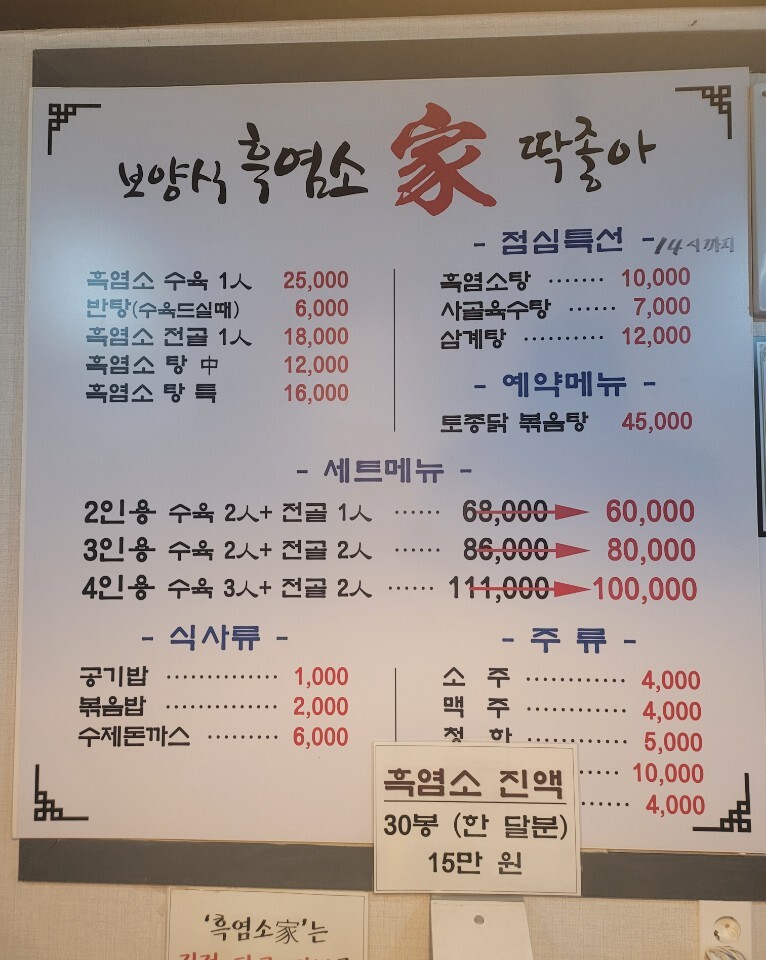 보양식 흑염소 家 딱좋아
흑염소 수육 1人 25,000
반탕(수육드실때) 6,000
흑염소 전골 1人 18,000
흑염소 탕 中 12,000
흑염소 탕 특 16,000
- 점심특선 - 14시까지
흑염소탕 ······· 10,000
사골육수탕 ······ 7,000
삼계탕 ·········· 12,000
- 예약메뉴 -
토종닭 볶음탕 45,000
- 세트메뉴 -
2인용 수육 2人+ 전골 1人 ······ 68,000 → 60,000
3인용 수육 2人+ 전골 2人 ······ 86,000 → 80,000
4인용 수육 3人+ 전골 2人 ······ 111,000 → 100,000
- 식사류 -
공기밥 ·············· 1,000
볶음밥 ·············· 2,000
수제돈까스 ········· 6,000
- 주 류 -
소 주 ············· 4,000
맥 주 ············· 4,000
청 하 ············· 5,000
····· 10,000
······ 4,000
흑염소 진액
30봉 (한 달분)
15만 원
'흑염소家'는